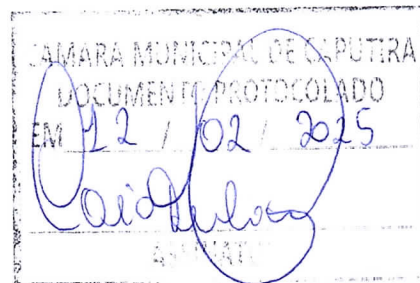 CÂMARA MUNICIPAL DE CAPUTIRA
DOCUMENTO PROTOCOLADO
EM 12 / 02 / 2025